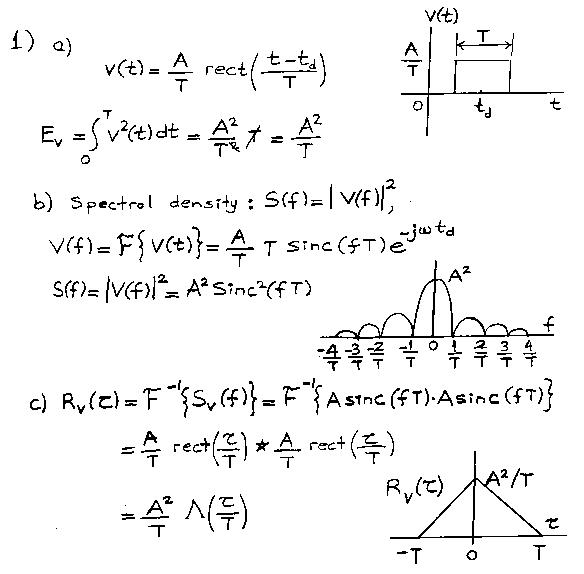 1) a)
v(t) = A/T rect((t-t_d)/T)
v(t)
A/T
T
0 t_d t
E_v = ∫_0^T v²(t) dt = A²/T² T = A²/T
b) Spectral density : S(f) = |V(f)|²,
V(f) = F{V(t)} = A/T T sinc(fT) e^{-jωt_d}
S(f) = |V(f)|² = A² Sinc²(fT)
A²
f
-4/T -3/T -2/T -1/T 0 1/T 2/T 3/T 4/T
c) R_v(τ) = F⁻¹{S_v(f)} = F⁻¹{A sinc(fT)·A sinc(fT)}
= A/T rect(τ/T) ★ A/T rect(τ/T)
= A²/T Λ(τ/T)
R_v(τ) A²/T
τ
-T 0 T